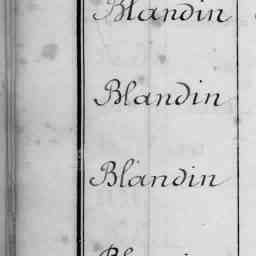 Blandin
Blandin
Blandin